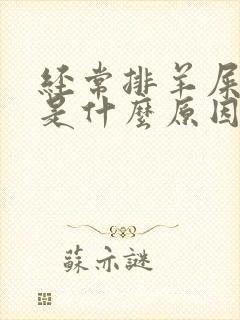 經常排羊屎
是什麼原因
蘇亦謎